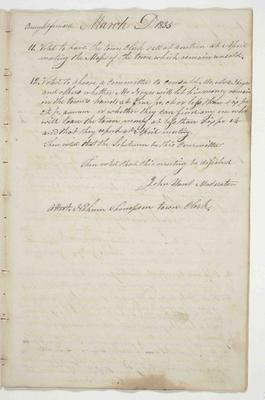 Brought forward March D 1835
11. Voted to have the town Clerk sell at auction at April
meeting the Maps of the town which remain unsold.
12. Voted to choose a Committee to consult Mr
and others whether Mr Noyes will let his money remain
in the town's hands at five pr. ct or less, than six pr.
ct. pr. annum. or whether they can find any one who
will loan the town money at less than six pr ct.
and that they report at April meeting.
Then voted that the Selectmen be this Committee
Then voted that this meeting be dissolved
John Hunt Moderator
Attest. Edwin Thompson town Clerk.